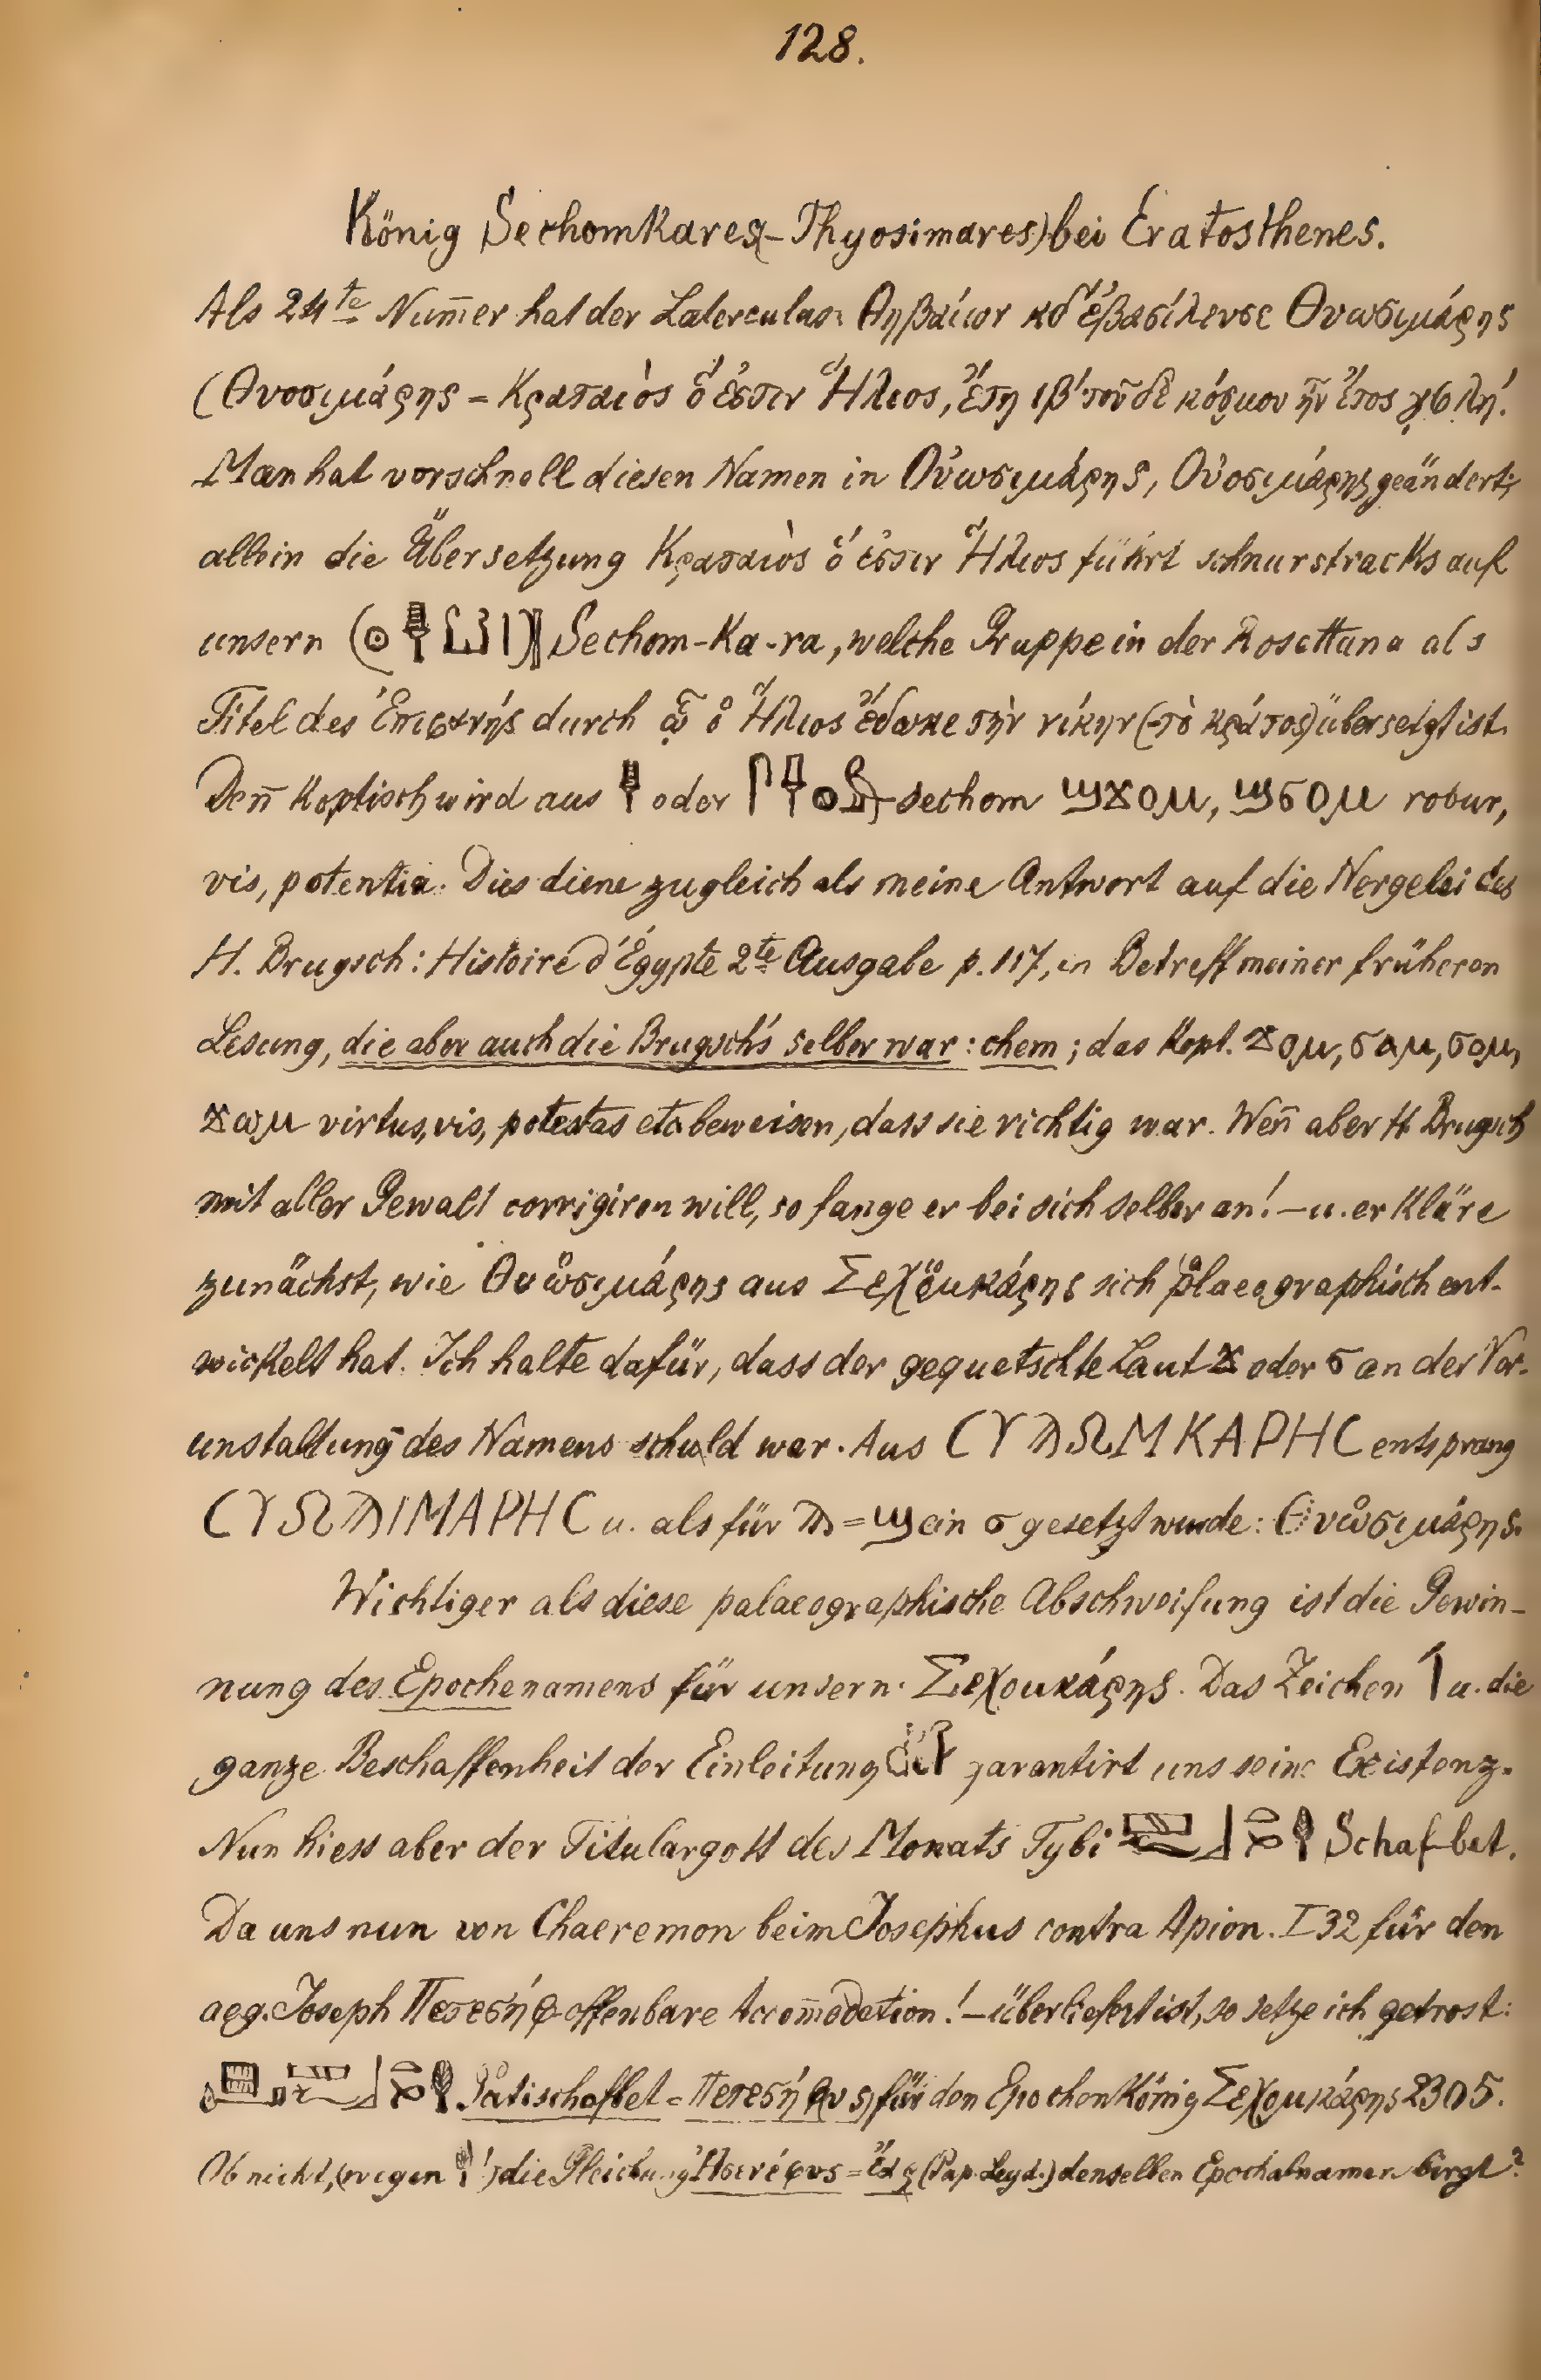 128.
König Sechomkares(-Thyosimares) bei Eratosthenes.
Als 24te Num̄er hat der Laterculus: Θηβαίων κδ' ἐβασίλευσε Θυωσιμάρης
(Θυοσιμάρης = Κραταιὸς ὅ ἐστιν Ἥλιος, ἔτη ιβ' τοῦ δὲ κόσμου ἦν ἔτος
Man hat vorschnell diesen Namen in Οὐωσιμάρης, Οὐοσιμάρης geändert;
allein die Übersetzung Κραταιὸς ὅ ἐστιν Ἥλιος führt schnurstracks auf
unsern Sechom-Ka-ra, welche Gruppe in der Rosettana als
Titel des durch ᾧ ὁ Ἥλιος ἔδωκε τὴν νίκην (-τὸ κράτος) übersetzt ist.
Den̄ Koptisch wird aus oder sechom ϣϫⲟⲙ, ϣϭⲟⲙ robur,
vis, potentia. Dies diene zugleich als meine Antwort auf die Nergelei des
H. Brugsch: Histoire d'Égypte 2te Ausgabe p. 117, in Betreff meiner früheren
Lesung, die aber auch die Brugsch's selber war: chem; das Kopt. ϫⲟⲙ, ϭⲁⲙ, ϭⲟⲙ,
ϫⲱⲙ virtus, vis, potestas etc beweisen, dass sie richtig war. Wen̄ aber H. Brugsch
mit aller Gewalt corrigiren will, so fange er bei sich selber an! – u. erkläre
zunächst, wie aus sich palaeographisch ent-
wickelt hat. Ich halte dafür, dass der gequetschte Laut ϫ oder ϭ an der Ver-
unstaltung des Namens schuld war. Aus ΜΚΑΡΗC entsprang
ΙΜΑΡΗC u. als für = ϣ ein σ gesetzt wurde:
Wichtiger als diese palaeographische Abschweifung ist die Gewin-
nung des Epochenamens für unsern Σεχομκάρης. Das Zeichen u. die
ganze Beschaffenheit der Einleitung garantirt uns seine Existenz.
Nun hiess aber der Titulargott des Monats Tybi Schaf-bet.
Da uns nun von Chaeremon beim Josephus contra Apion. I 32 für den
aeg. Joseph Πετεσήφ offenbare Accom̄odation! – überliefert ist, so setze ich getrost:
Patischafbet = für den Epochenkönig Σεχομκάρης 2305.
Ob nicht, (wegen die Gleichung = (Pap. Leyd.) denselben Epochalnamen birgt?